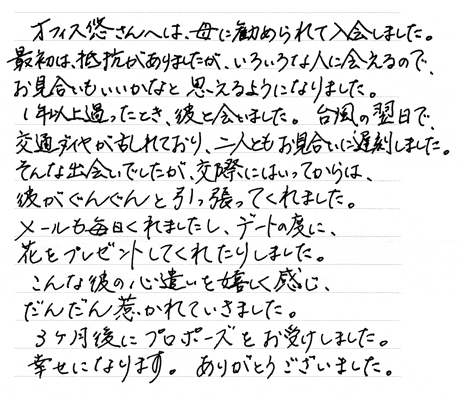 オフィス悠さんへは、母に勧められて入会しました。
最初は、抵抗がありましたが、いろいろな人に会えるので、
お見合いもいいかなと思えるようになりました。
1年以上過ったとき、彼と会いました。台風の翌日で、
交通ダイヤが乱れており、二人ともお見合いに遅刻しました。
そんな出会いでしたが、交際にはいってからは、
彼がぐんぐんと引っ張ってくれました。
メールも毎日くれましたし、デートの度に、
花をプレゼントしてくれたりしました。
こんな彼の心遣いを嬉しく感じ、
だんだん惹かれていきました。
3ヶ月後にプロポーズをお受けしました。
幸せになります。ありがとうございました。